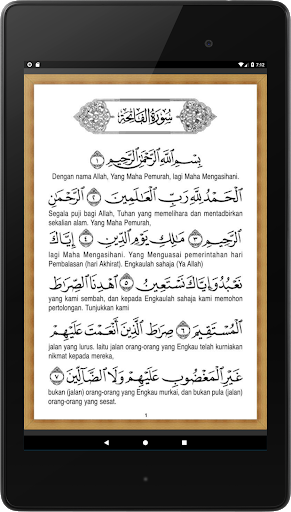 7:52
سُورَةُ الفَاتِحَة
بِسْمِ اللَّهِ الرَّحْمَٰنِ الرَّحِيمِ ١
Dengan nama Allah, Yang Maha Pemurah, lagi Maha Mengasihani.
الْحَمْدُ لِلَّهِ رَبِّ الْعَالَمِينَ ٢ الرَّحْمَٰنِ
Segala puji bagi Allah, Tuhan yang memelihara dan mentadbirkan
sekalian alam. Yang Maha Pemurah,
الرَّحِيمِ ٣ مَالِكِ يَوْمِ الدِّينِ ٤ إِيَّاكَ
lagi Maha Mengasihani. Yang Menguasai pemerintahan hari
Pembalasan (hari Akhirat). Engkaulah sahaja (Ya Allah)
نَعْبُدُ وَإِيَّاكَ نَسْتَعِينُ ٥ اهْدِنَا الصِّرَاطَ
yang kami sembah, dan kepada Engkaulah sahaja kami memohon
pertolongan. Tunjukkan kami
الْمُسْتَقِيمَ ٦ صِرَاطَ الَّذِينَ أَنْعَمْتَ عَلَيْهِمْ
jalan yang lurus. Iaitu jalan orang-orang yang Engkau telah kurniakan
nikmat kepada mereka,
غَيْرِ الْمَغْضُوبِ عَلَيْهِمْ وَلَا الضَّالِّينَ ٧
bukan (jalan) orang-orang yang Engkau murkai, dan bukan pula (jalan)
orang-orang yang sesat.
1